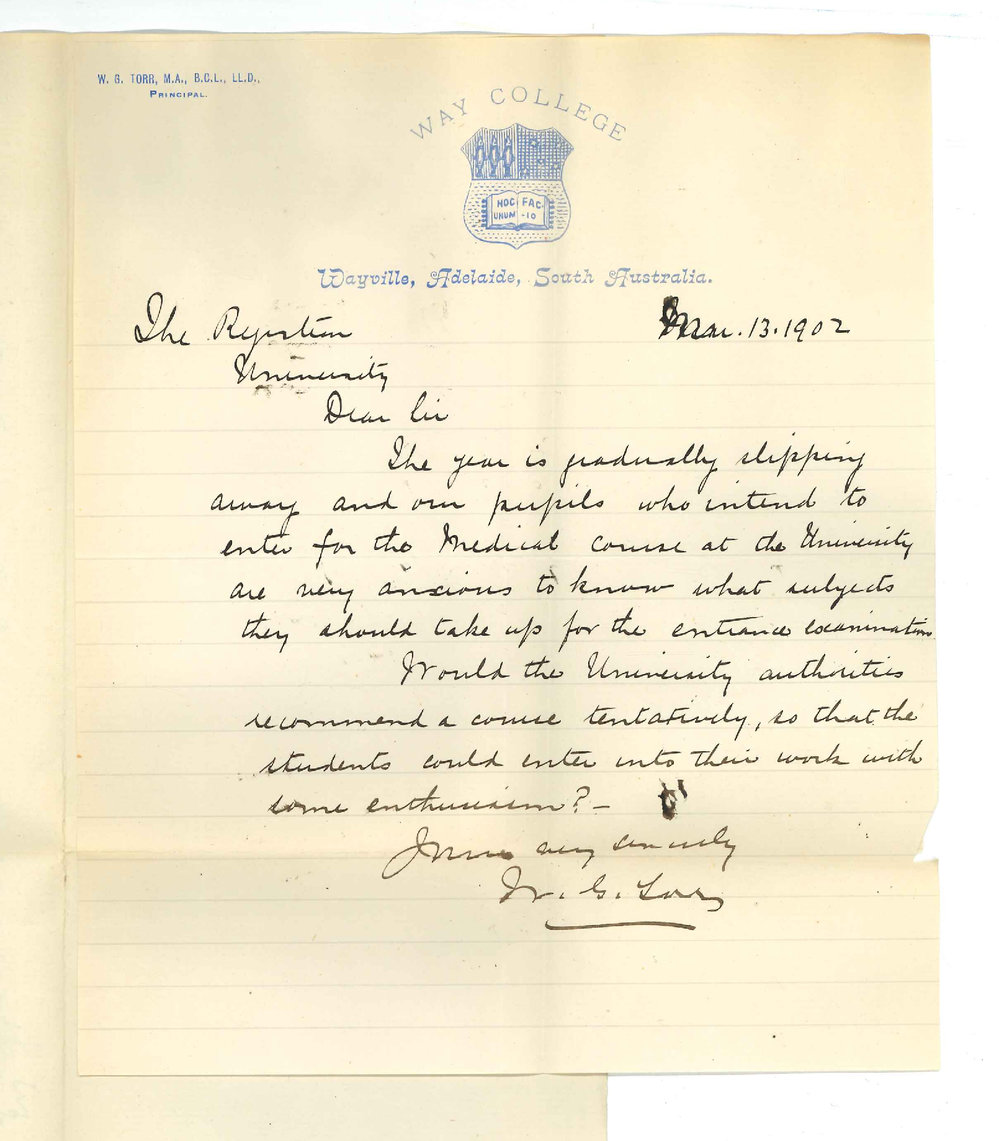 W. G. TORR, M.A., B.C.L., LL.D.,
PRINCIPAL.
WAY COLLEGE
HOC FAC
UNUM -IO
Wayville, Adelaide, South Australia.
The Registrar
Mar. 13. 1902
University
Dear Sir
The year is gradually slipping
away and our pupils who intend to
enter for the Medical course at the University
are very anxious to know what subjects
they should take up for the entrance examination
Would the University authorities
recommend a course tentatively, so that the
students could enter into their work with
some enthusiasm? -
Yours very sincerely
W. G. Torr